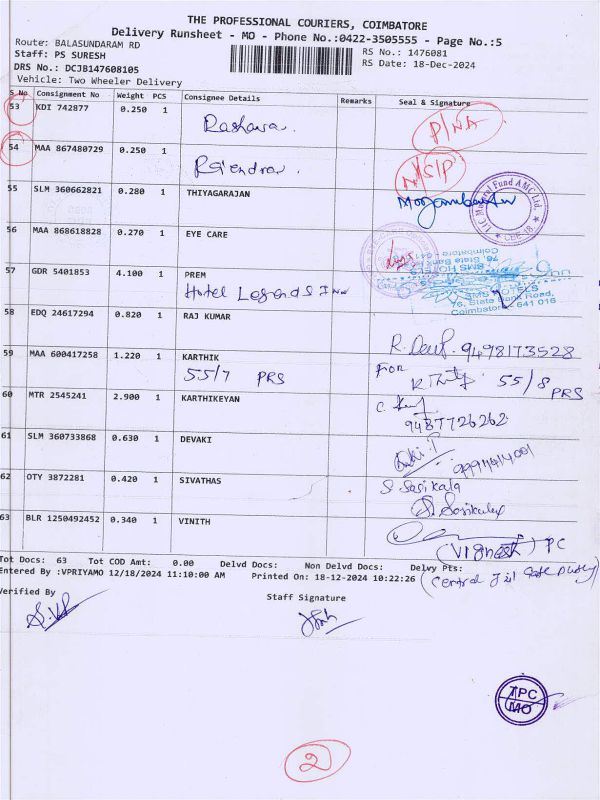 THE PROFESSIONAL COURIERS, COIMBATORE
Delivery Runsheet - MO - Phone No.:0422-3505555 - Page No.:5
Route: BALASUNDARAM RD
RS No.: 1476081
Staff: PS SURESH
RS Date: 18-Dec-2024
DRS No.: DCJB147608105
Vehicle: Two Wheeler Delivery
S No Consignment No Weight PCS Consignee Details Remarks Seal & Signature
53 KDI 742877 0.250 1
P/NA
54 MAA 867480729 0.250 1 Rajendran.
N/S/P
55 SLM 360662821 0.280 1 THIYAGARAJAN
LIC Mutual Fund AMC Ltd.
56 MAA 868618828 0.270 1 EYE CARE
57 GDR 5401853 4.100 1 PREM
Hotel Legends Inn
SMS HOTELS
76, State Bank Road,
Coimbatore - 641 018
58 EDQ 24617294 0.820 1 RAJ KUMAR
R. 9498173528
59 MAA 600417258 1.220 1 KARTHIK
55/7 PRS
For
55/8 PRS
60 MTR 2545241 2.900 1 KARTHIKEYAN
9487726262
61 SLM 360733868 0.630 1 DEVAKI
62 OTY 3872281 0.420 1 SIVATHAS
S. Sasikala
63 BLR 1250492452 0.340 1 VINITH
(Vignesh) PC
Tot Docs: 63 Tot COD Amt: 0.00 Delvd Docs: Non Delvd Docs: Delvy Pts:
Entered By :VPRIYAMO 12/18/2024 11:10:00 AM Printed On: 18-12-2024 10:22:26
Verified By
Staff Signature
TPC
MO
2